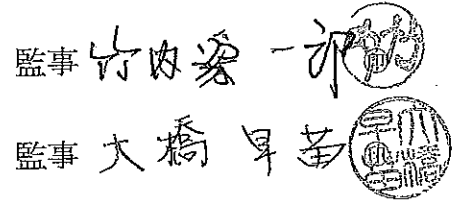 監事 竹内 一郎
監事 大橋 早苗